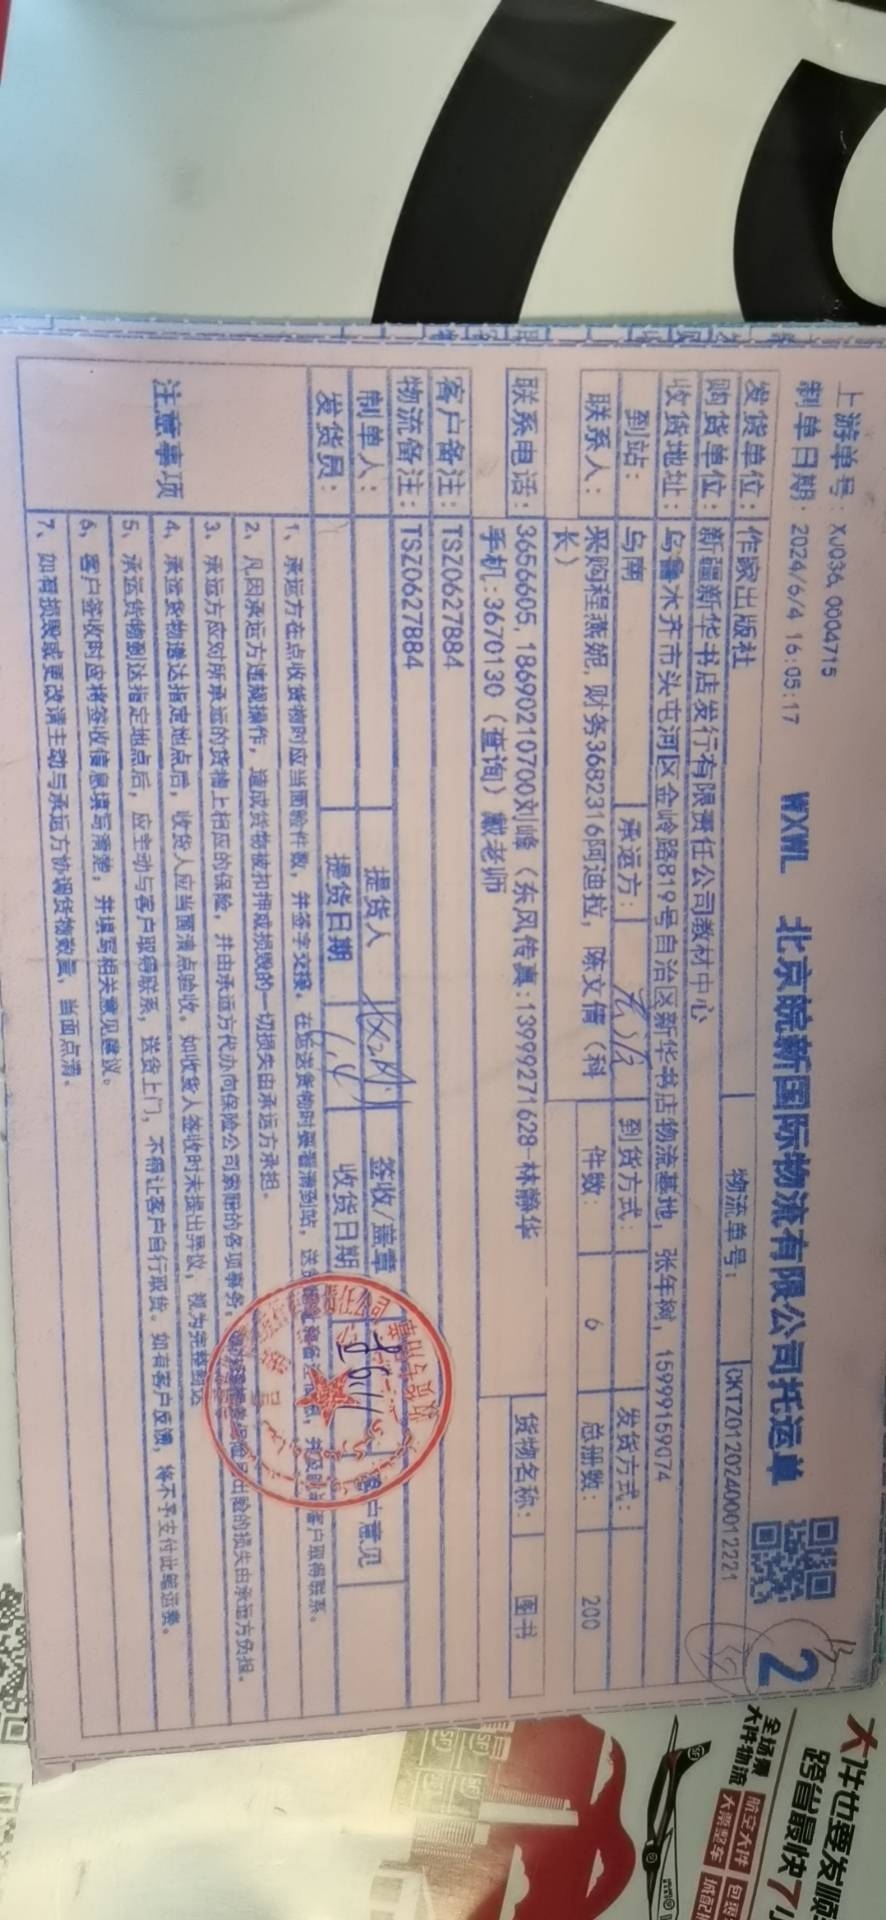 上游单号: XJ036, 0004715
制单日期: 2024/6/4 16:05:17
WXWL 北京皖新国际物流有限公司托运单
2
物流单号: CKTZ01202400012221
发货单位: 作家出版社
购货单位: 新疆新华书店发行有限责任公司教材中心
收货地址: 乌鲁木齐市头屯河区金岭路819号自治区新华书店物流基地, 张年树, 15999159074
到站: 乌南 承运方: 到货方式: 发货方式:
联系人: 采购程燕妮, 财务3682316阿迪拉, 陈文倩（科长） 件数: 6 总册数: 200
联系电话: 3656605, 18690210700刘峰（东风传真:13999271628-林静华 货物名称: 图书
手机:3670130（查询）戴老师
客户备注: TSZ0627884
物流备注: TSZ0627884
制单人: 提货人 签收/盖章 客户意见
发货员: 提货日期 收货日期
注意事项
1、承运方在点收货物时应当面验件数, 并签字交接。在运送货物时要看清到站, 送货 客户取得联系。
2、凡因承运方违规操作, 造成货物被扣押或损毁的一切损失由承运方承担。
3、承运方应对所承运的货物上相应的保险, 并由承运方代办向保险公司索赔的各项事务, 出险的损失由承运方负担。
4、承运货物送达指定地点后, 收货人应当面清点验收。如收货人签收时未提出异议, 视为完整到达
5、承运货物到达指定地点后, 应主动与客户取得联系, 送货上门, 不得让客户自行取货。如有客户反馈, 将不予支付此笔运费。
6、客户签收时应将签收信息填写清楚, 并填写相关意见建议。
7、如有损毁或更改请主动与承运方协调货物数量, 当面点清。
大件也要发顺
跨省最快7小
全场景
大件物流
航空大件
大票整车